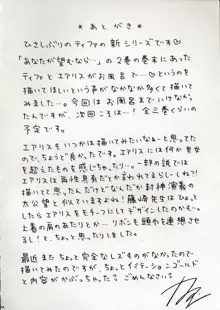 * あとがき *
ひさしぶりのティファの新シリーズです♡
「あなたが望むなら…」の2巻の巻末にあった
ティファとエアリスがお風呂で…♡というのを
描いてほしいという声がなかなか多くて描い
てみました…。今回はお風呂までいけなかっ
たんですが、次回こそは…！全三巻くらいの
予定です。
エアリスをいつかは描いてみたいなぁーと思ってた
ので、ちょうど良かったです。エアリスには何か男女
を超えたものを感じちゃったり…。一部の説では
エアリスは両性具有だとか言われてますしー（しまった?!
描いてて思ったんだけどなんだか封神演義の
太公望と似ていますよね！藤崎先生はひょっと
したらエアリスをモチーフにしてデザインしたのかもー。
上着の肩のあたりとか…リボンも頭巾を連想させ
るし！と、思ったりしました。
最近また ちょっと安全なレズものがなかったので
描いてみたのですが、ちょっとイミテーションゴールド
と内容がかぶっちゃった? ごめんなさい